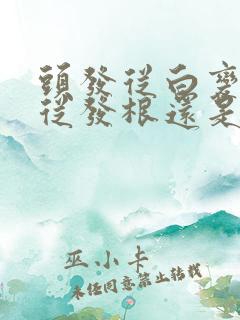 頭發從白變
從發根還是
巫小卡
未經同意禁止轉載